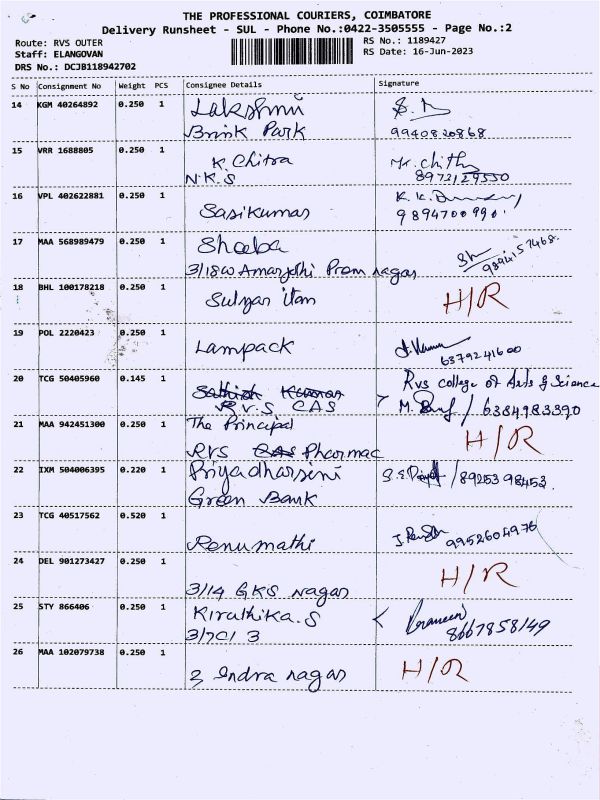 THE PROFESSIONAL COURIERS, COIMBATORE
Delivery Runsheet - SUL - Phone No.:0422-3505555 - Page No.:2
Route: RVS OUTER
Staff: ELANGOVAN
DRS No.: DCJB118942702
RS No.: 1189427
RS Date: 16-Jun-2023
S No Consignment No Weight PCS Consignee Details Signature
14 KGM 40264892 0.250 1 Lakshmi
Brink Park 9940820868
15 VRR 1688805 0.250 1 K. Chitra
N.K.S
16 VPL 402622881 0.250 1
Sasikumar 9894700990
17 MAA 568989479 0.250 1 Sheeba
3/18 Prem nagar 9894157468
18 BHL 100178218 0.250 1 H/R
19 POL 2220423 0.250 1
Lampack 6379241600
20 TCG 50405960 0.145 1 Sathish Kumar Rvs college of Arts & Science
R.V.S. CAS 6384983390
21 MAA 942451300 0.250 1 The Principal H/R
RVS CAS Pharmac
22 IXM 504006395 0.220 1 Priyadharsini 8925398453
Green Bank
23 TCG 40517562 0.520 1
Renumathi 9952604976
24 DEL 901273427 0.250 1 H/R
3/14 GKS Nagar
25 STY 866406 0.250 1 Kiruthika.S
8667858149
26 MAA 102079738 0.250 1 H/R
3 Indra nagar